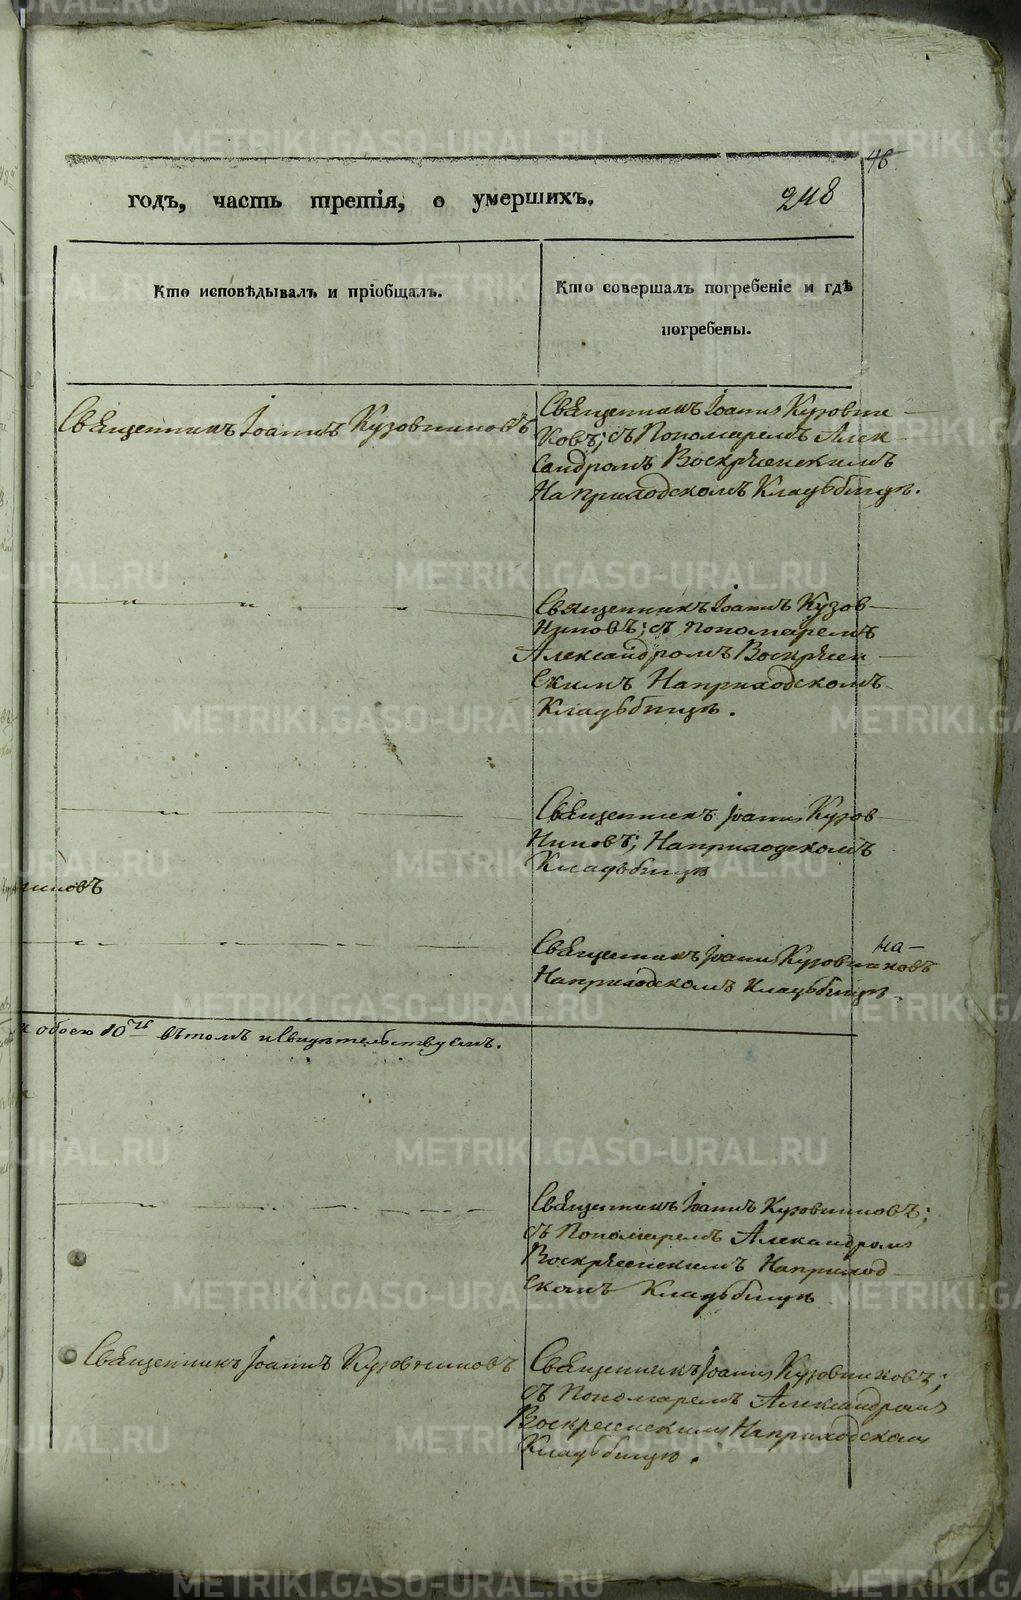 46
годъ, часть третія, о умершихъ.
248
Кто исповѣдывалъ и пріобщалъ.
Кто совершалъ погребеніе и гдѣ
погребены.
Священникъ Іоаннъ Кузовниковъ
Священникъ Іоаннъ Кузовни-
ковъ; съ Пономаремъ Алек-
сандромъ Воскрѣсенскимъ
На приходскомъ Кладьбищѣ.
Священникъ Іоаннъ Кузов-
никовъ; съ пономаремъ
Александромъ Воскрѣсен-
скимъ На приходскомъ
Кладьбищѣ.
Священникъ Іоаннъ Кузов-
никовъ; На приходскомъ
Кладьбищѣ
никовъ
Священникъ Іоаннъ Кузовниковъ на-
На приходскомъ Кладьбищѣ.
обоего 10ть въ томъ и Свидѣтельствуемъ.
Священникъ Іоаннъ Кузовниковъ;
съ Пономаремъ Александромъ
Воскрѣсенскимъ На приход-
скомъ Кладьбищѣ
Священникъ Іоаннъ Кузовниковъ
Священникъ Іоаннъ Кузовниковъ;
съ Пономаремъ Александромъ
Воскресенскимъ На приходскомъ
Кладьбищѣ.
METRIKI.GASO-URAL.RU